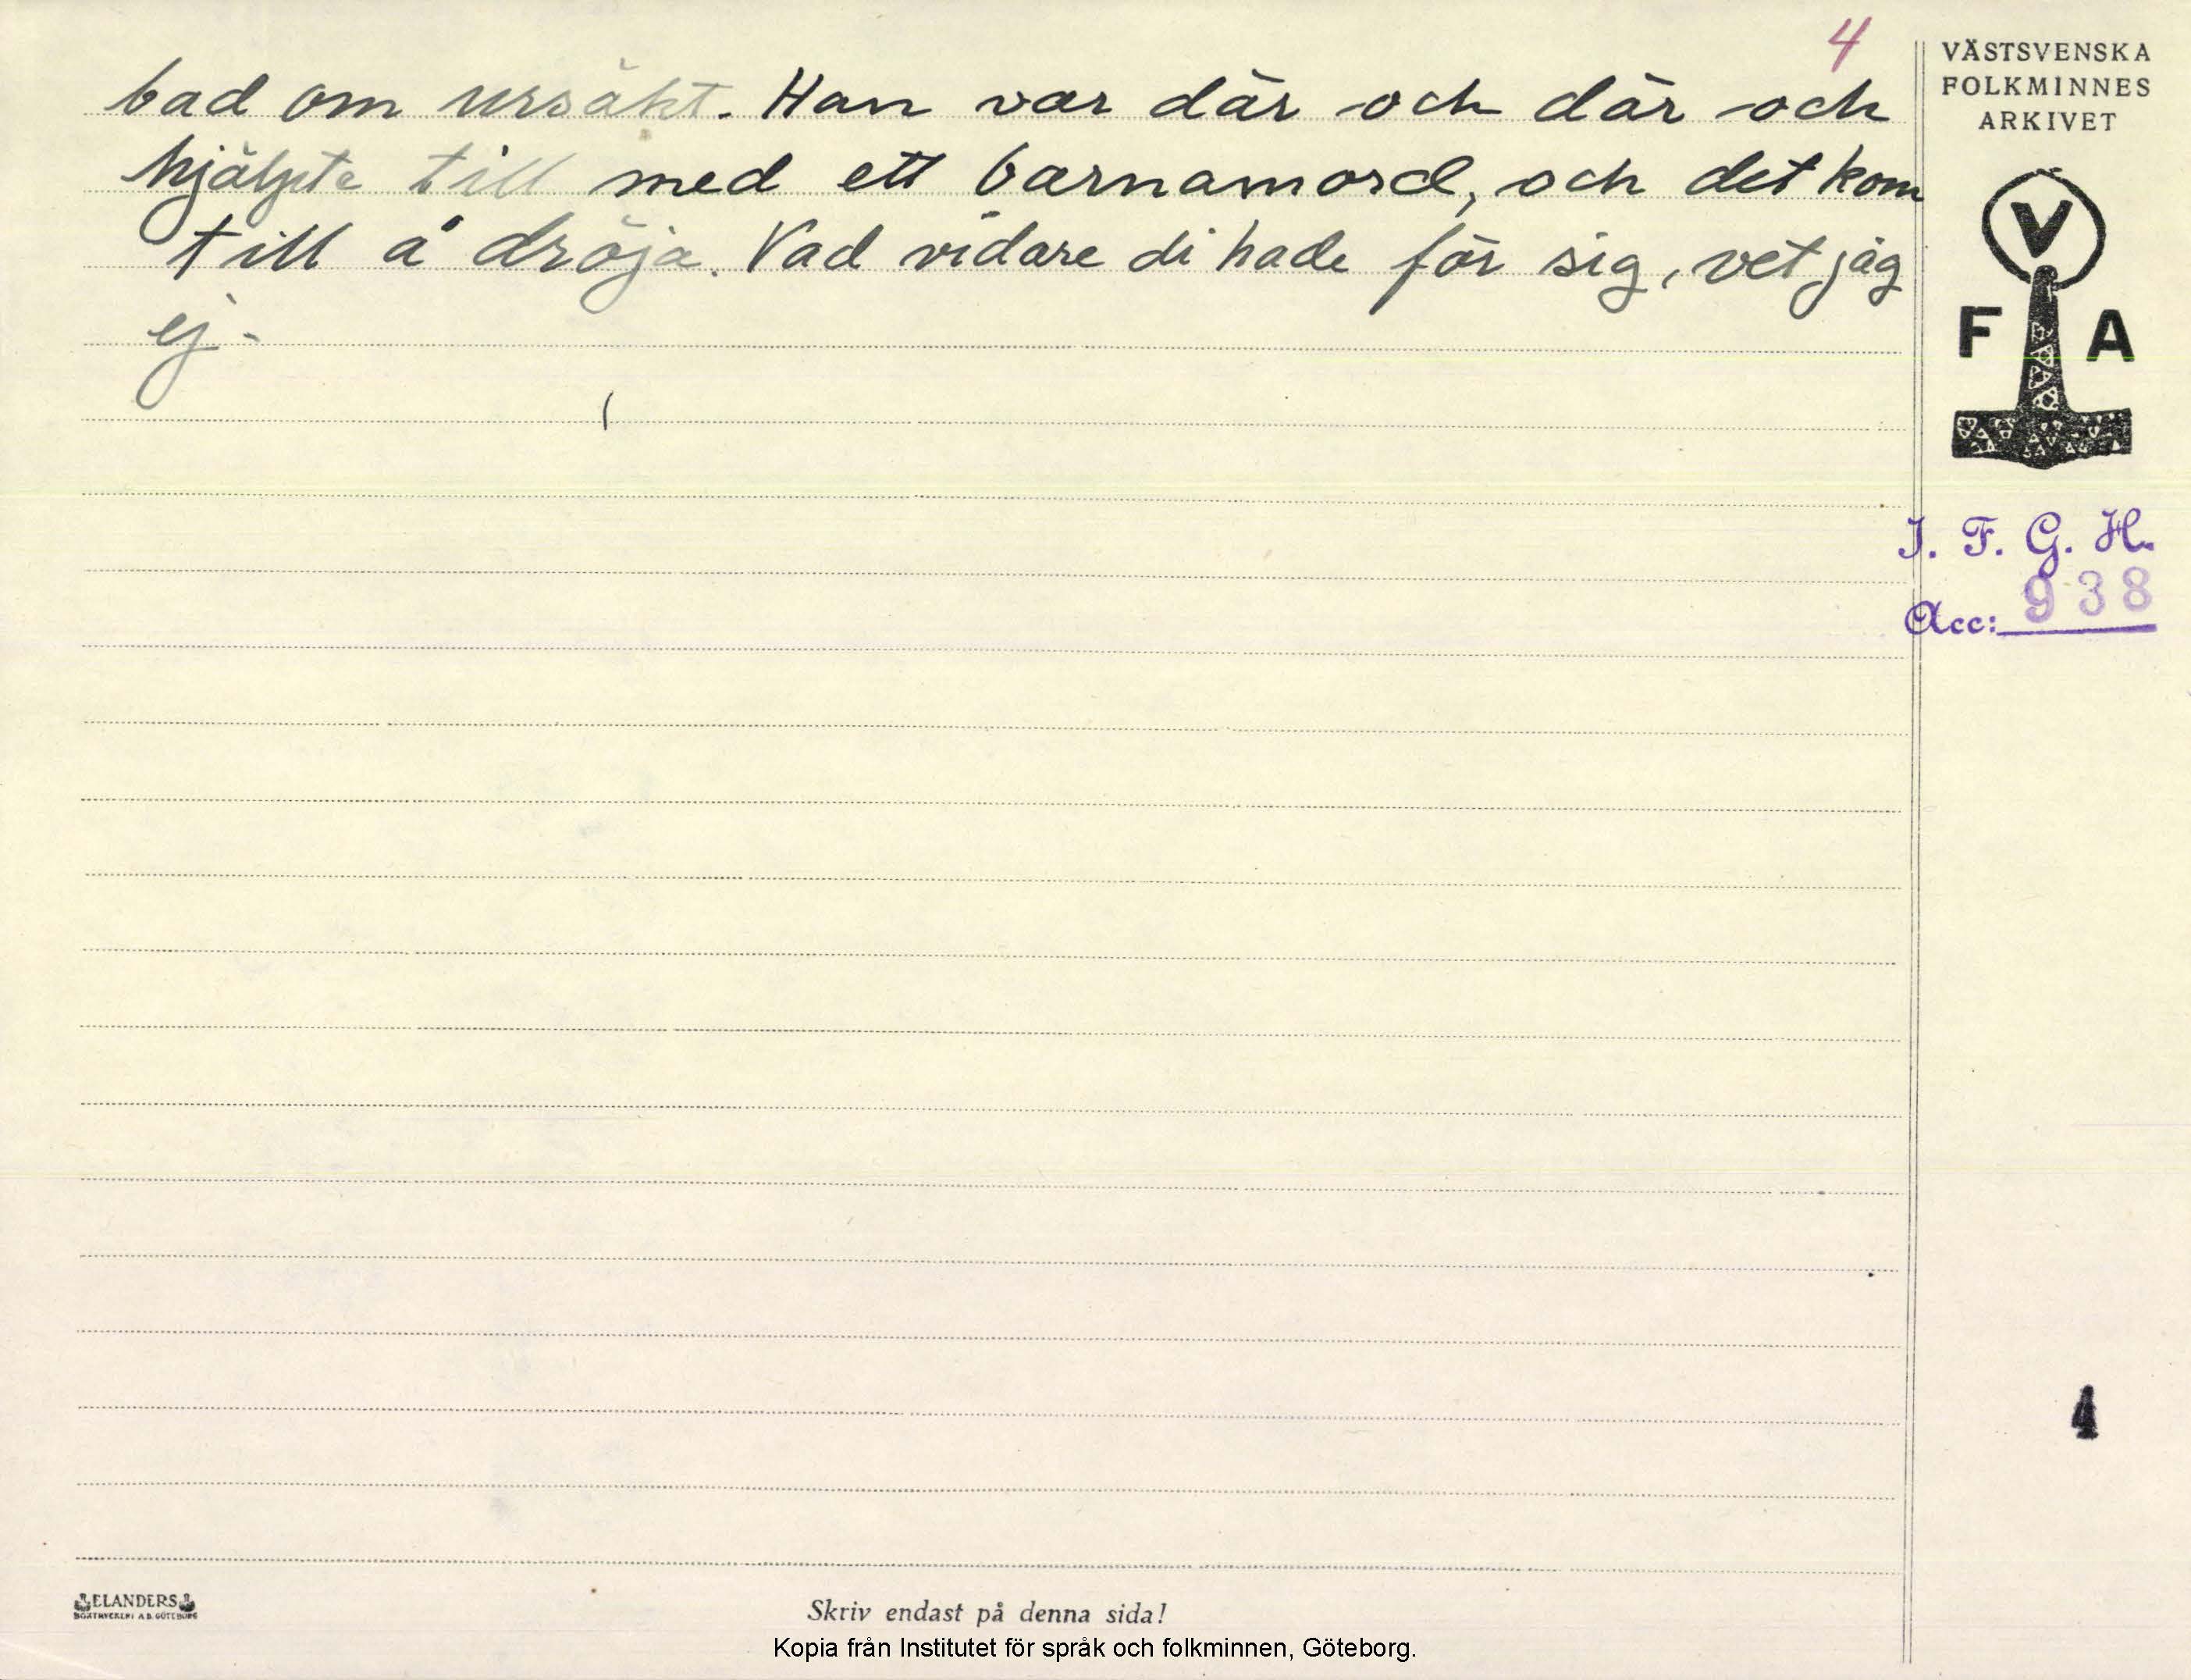 4
bad om ursäkt. Han var där och där och
hjälpte till med ett barnamord, och det kom
till å dröja. Vad vidare di hade för sig, vet jag
ej.
VÄSTSVENSKA
FOLKMINNES
ARKIVET
V
F A
I. F. G. H.
Acc: 938
4
ELANDERS
BOKTRYCKERI A.B. GÖTEBORG
Skriv endast på denna sida!
Kopia från Institutet för språk och folkminnen, Göteborg.